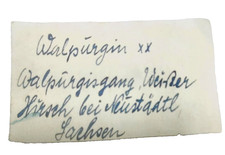 Walpurgin xx
Walpurgisgang, Weißer
Hirsch, bei Neustädtl,
Sachsen